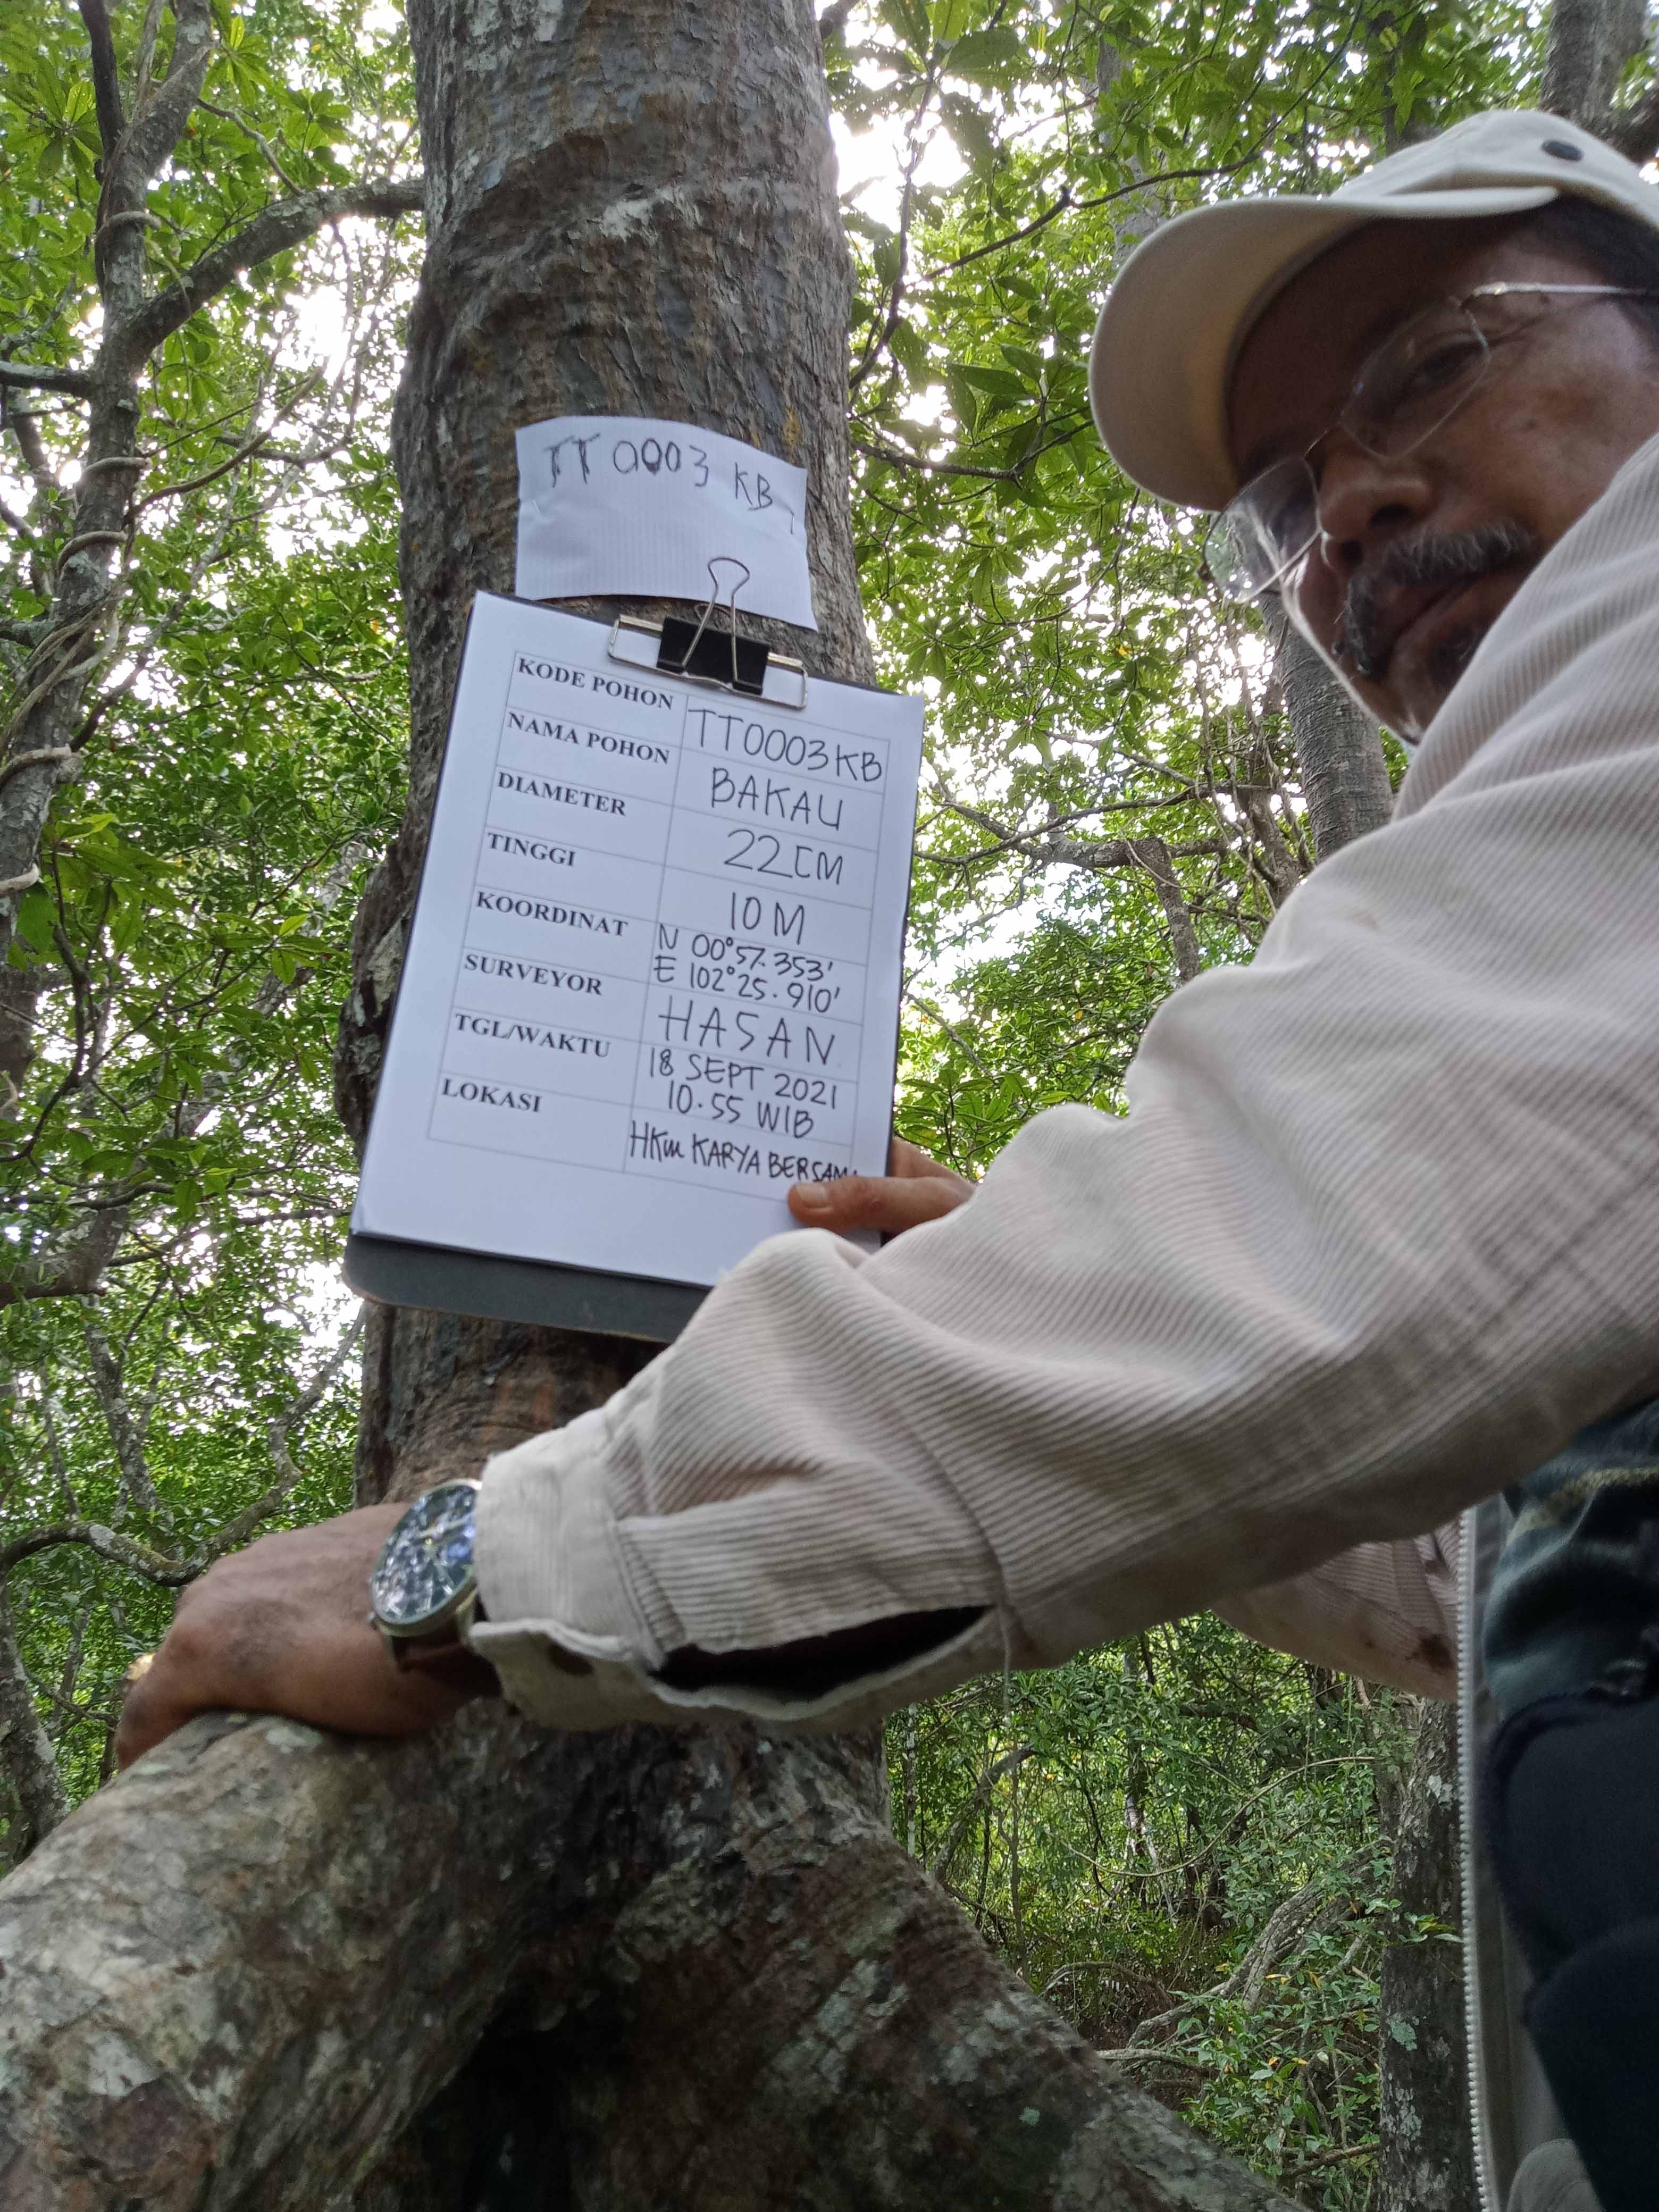 TT 0003 KB
KODE POHON TT0003KB
NAMA POHON BAKAU
DIAMETER 22 CM
TINGGI 10 M
KOORDINAT N 00°57.353'
E 102°25.910'
SURVEYOR HASAN
TGL/WAKTU 18 SEPT 2021
10.55 WIB
LOKASI HKm KARYA BERSAMA